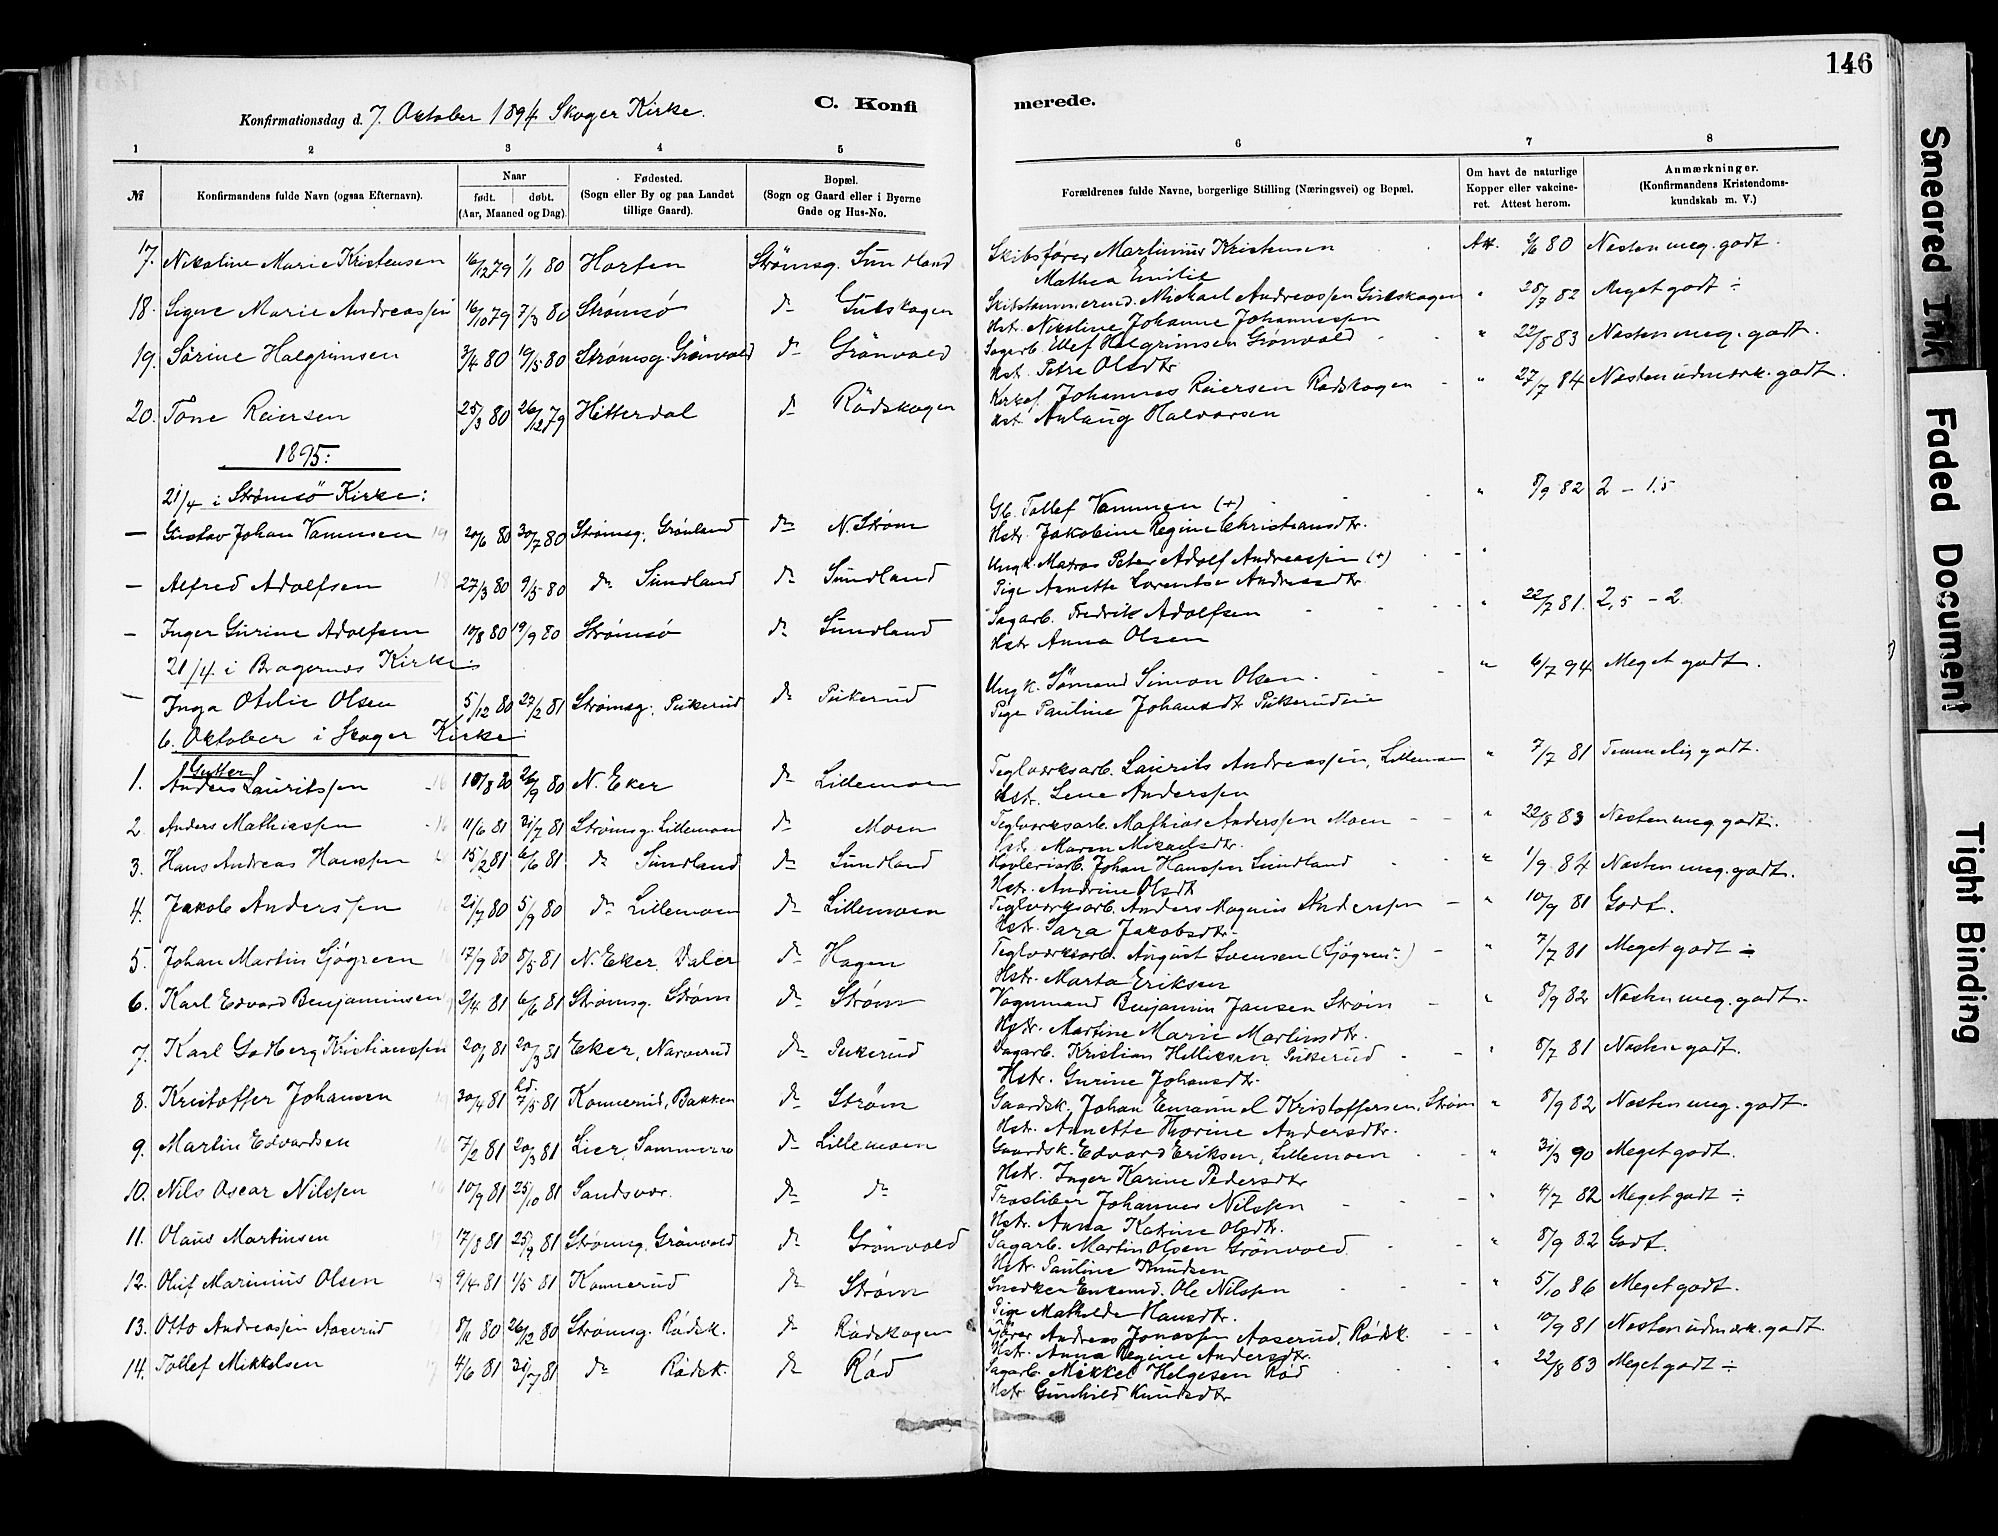 146
C. Konfi merede.
Konfirmationsdag d. 7. Oktober 1894 Skoger Kirke.
1 2 3 4 5 6 7 8
№ Konfirmandens fulde Navn (ogsaa Efternavn). Naar født. døbt. (Aar, Maaned og Dag). Fødested. (Sogn eller By og paa Landet tillige Gaard). Bopæl. (Sogn og Gaard eller i Byerne Gade og Hus-No. Forældrenes fulde Navne, borgerlige Stilling (Næringsvei) og Bopæl. Om havt de naturlige Kopper eller vakcineret. Attest herom. Anmærkninger. (Konfirmandens Kristendomskundskab m. V.)
17. Nikoline Marie Kristensen 16/12 79 1/1 80 Horten Strømsg. Sundland Skibsfører Martinius Kristensen Att. 2/6 80 Næsten meg. godt.
Mathea Emilie
18. Signe Marie Andreassen 16/10 79 7/3 80 Strømsø do Gulskogen Skibstømmermd. Mickael Andreassen Gulskogen " 28/7 82 Meget godt ÷
Hst. Nikoline Johanne Johannessen
19. Sørine Halgrimsen 3/4 80 19/5 80 Strømsg. Grønvold do Grønvold Sagarb. Ellef Halgrimsen Grønvold " 22/8 83 Næsten meg. godt.
Hst. Petre Olsdtr
20. Tone Reiersen 25/3 80 26/12 79 Hitterdal do Rødskogen Kirkes. Johannes Reiersen Rødskogen " 27/7 84 Næsten udmærk. godt.
Hst. Aslaug Halvorsen
1895:
21/4 i Strømsø Kirke:
— Gustav Johan Vammen 20/6 80 30/7 80 Strømsg. Grønland do N. Strøm Gb. Tollef Vammen (+) " 8/9 82 2 – 1,5
Hst. Jakobine Regine Christiansdtr.
— Alfred Adolfsen 27/3 80 9/5 80 do Sundland do Sundland Ungk. Matros Peter Adolf Andreassen (+) "
Pige Annette Lorentse Andreasdtr
— Inger Gurine Adolfsen 10/8 80 19/9 80 Strømsø do Sundland Sagarb. Fredrik Adolfsen " 22/7 81. 2,5 – 2.
Hst. Anna Olsen
21/4 i Bragernes Kirke:
— Inga Otilie Olsen 5/12 80 27/2 81 Strømsg. Pukerud do Pukerud Ungk. Sømand Simon Olsen. " 6/7 94 Meget godt.
Pige Pauline Johansdt Pukerudeie
6. Oktober i Skoger Kirke
Gutter
1. Anders Lauritssen 10/8 80 26/9 80 N. Eker do Lillemoen Teglverksarb. Laurits Andreassen, Lillemoen " 7/7 81 Temmelig godt.
Hst. Lene Anderssen
2. Anders Mathiassen 11/6 81 31/7 81 Strømsg. Lillemoen do Moen Teglverksarb. Mathias Anderssen Moen " 22/8 83 Næsten meg. godt.
Hst. Maren Mikaelsdtr.
3. Hans Andreas Hanssen 15/2 81 6/6 81 do Sundland do Sundland Høvleriarb. Johan Hanssen Sundland " 1/9 84 Næsten meg. godt.
Hst. Andrine Olsdt
4. Jakob Anderssen 21/7 80 5/9 80 do Lillemoen do Lillemoen Teglverksarb. Anders Magnus Anderssen " 10/9 81 Godt.
Hst. Sara Jakobsdtr.
5. Johan Martin Sjøgreen 17/9 80 8/5 81 N. Eker, Daler do Hagen Teglverksarb. August Svensen (Sjøgren) " 7/7 81 Meget godt ÷
Hst. Marta Eriksen
6. Karl Edvard Benjaminsen 2/4 81 6/6 81 Strømsg. Strøm do Strøm Vognmand Benjamin Jansen Strøm " 8/9 82 Næsten meg. godt.
Hst. Martine Marie Martinsdtr.
7. Karl Godberg Kristianssen 20/1 81 20/3 81 Eker, Narverud do Pukerud Dagarb. Kristian Helliksen Pukerud " 8/7 81 Næsten godt.
Hst. Gurine Johansdtr.
8. Kristoffer Johansen 30/4 81 7/5 81 Konnerud, Bakken do Strøm Gaardsk. Johan Emanuel Kristoffersen, Strøm " 8/9 82 Næsten meg. godt.
Hst. Annette Thorine Andersdtr.
9. Martin Edvardsen 7/2 81 20/3 81 Lier, Sommerro do Lillemoen Gaardsk. Edvard Eriksen, Lillemoen " 31/3 90 Meget godt.
Hst. Inger Karine Pedersdtr
10. Nils Oscar Nilssen 10/9 81 25/10 81 Sandsvær. do do Træsliber Johannes Nilssen " 4/7 82 Meget godt ÷
Hst. Anna Katrine Olsdtr.
11. Olaus Martinsen 17/8 81 25/9 81 Strømsg. Grønvold do Grønvold Sagarb. Martin Olsen Grønvold " 8/9 82 Godt.
Hst. Pauline Knudsen
12. Oluf Marinius Olsen 9/4 81 1/5 81 Konnerud do Strøm Snedker Enkemd. Ole Nilssen " 5/10 86 Meget godt.
Pige Mathilde Hansdtr.
13. Otto Andreassen Aaserud 8/11 80 26/12 80 Strømsg. Rødsk. do Rødskogen Andreas Jonassen Aaserud, Rødsk. " 10/9 81 Næsten udmærk. godt.
Hst. Anna Regine Andersdtr.
14. Tollef Mikkelsen 4/6 81 31/7 81 do Rødsk. do Rød Sagarb. Mikkel Helgesen Rød " 22/8 83 Meget godt ÷
Hst. Gunhild Knudsdtr
Smeared Ink
Faded Document
Tight Binding